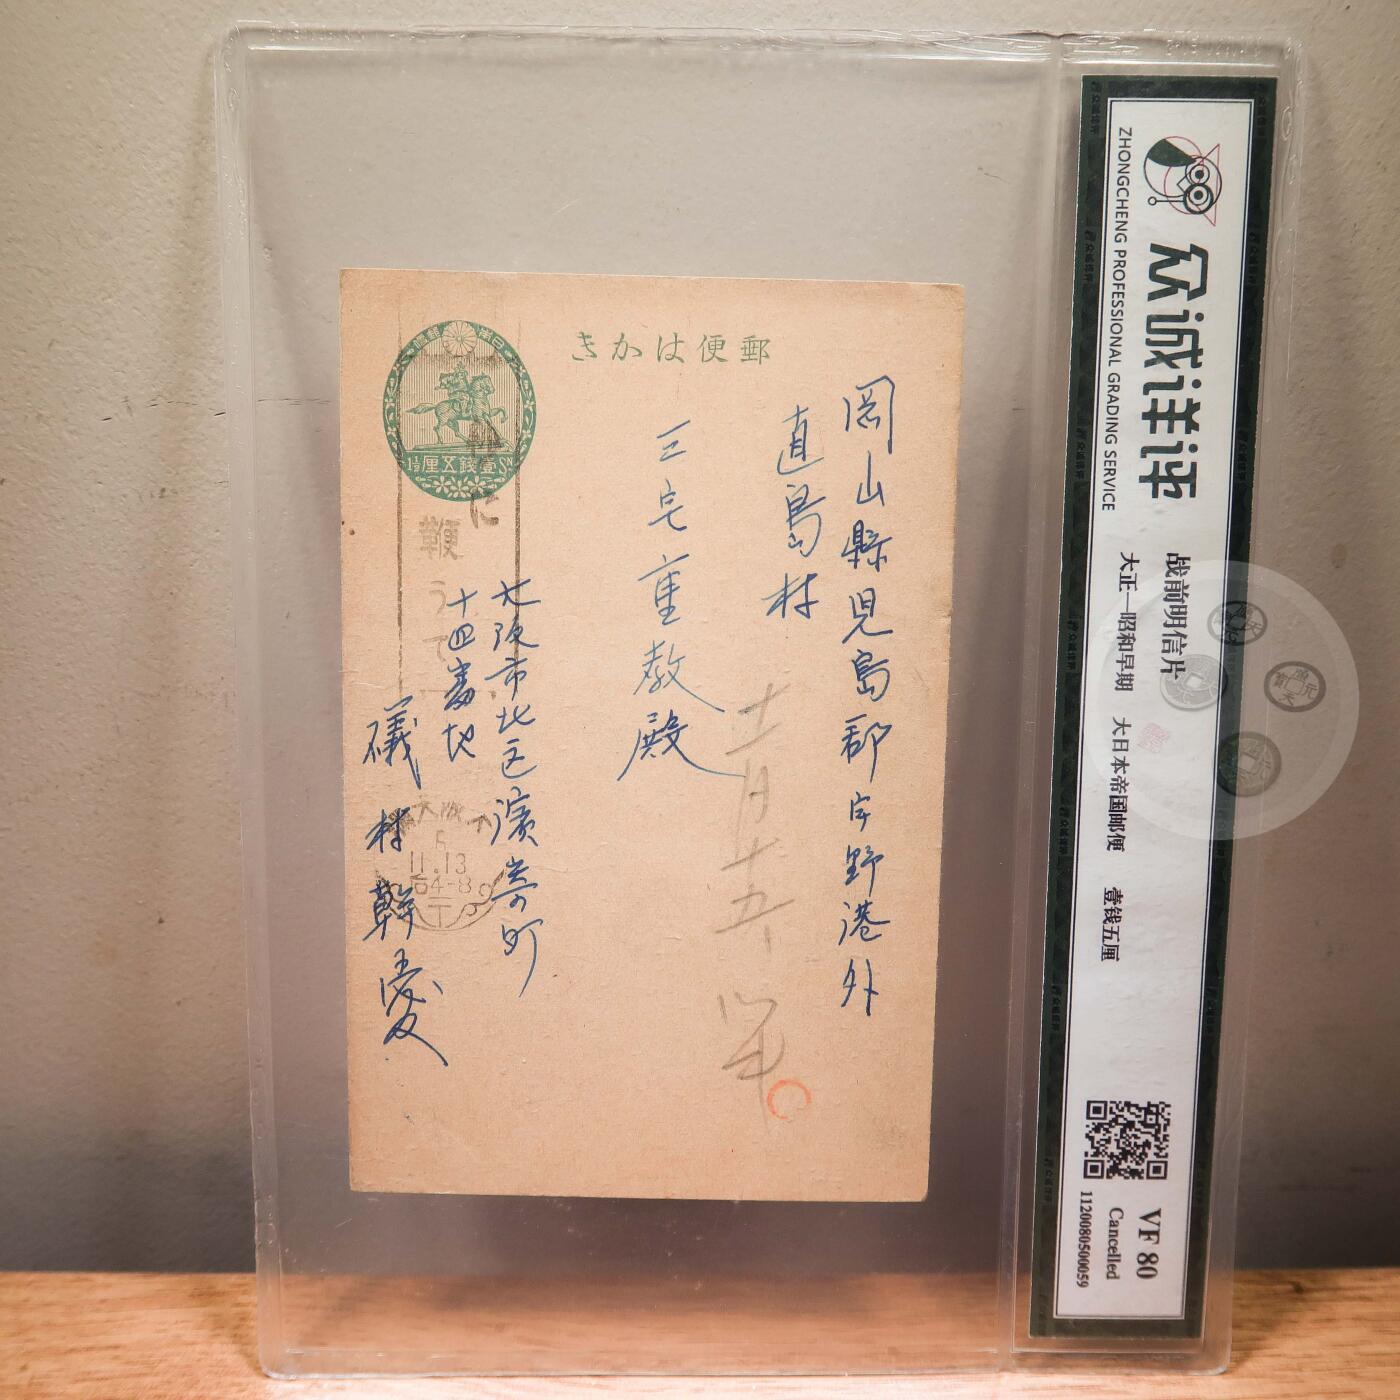 郵便はかき
日本
壹錢五厘
岡山縣児島郡宇野港外
直島村
三宅重教殿
十一月十五
大阪市北区濱崎町
十四番地
磯村
に
鞭うて
大阪
11.13
后4-8
众诚详评
ZHONGCHENG PROFESSIONAL GRADING SERVICE
战前明信片
大正—昭和早期 大日本帝国邮便 壹钱五厘
VF 80
Cancelled
1120080500059